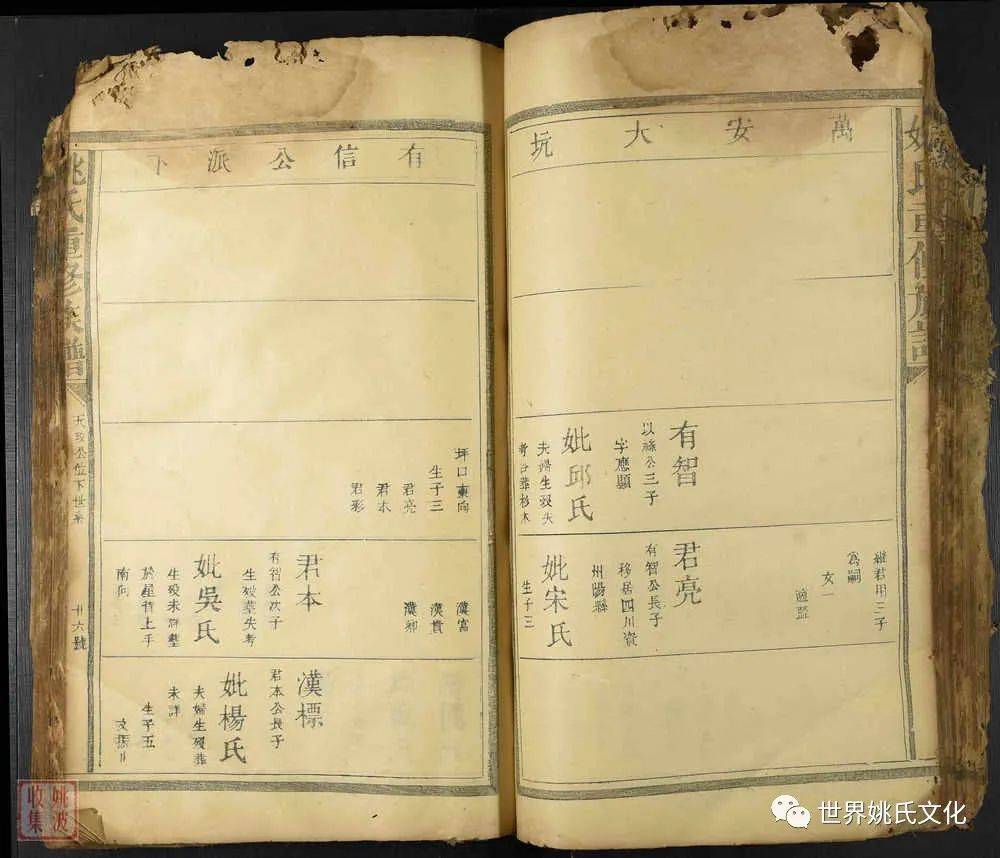 姚氏重修族譜
萬安大坑
有智
三子
字應顯
妣邱氏
夫婦生歿失
考合葬杉木
繼君用三子
為嗣
女一
適藍
君亮
有智公長子
移居四川資
州陽縣
妣宋氏
生子三
有信公派下
坪口東向
生子三
君亮
君本
君彩
漢富
漢貴
漢卿
君本
有智公次子
生歿葬失考
妣吳氏
生歿未詳墓
於屋背上手
南向
漢標
君本公長子
妣楊氏
夫婦生歿葬
未詳
生子五
姚氏重修族譜
公位下世系
廿六號
姚波
收集
世界姚氏文化